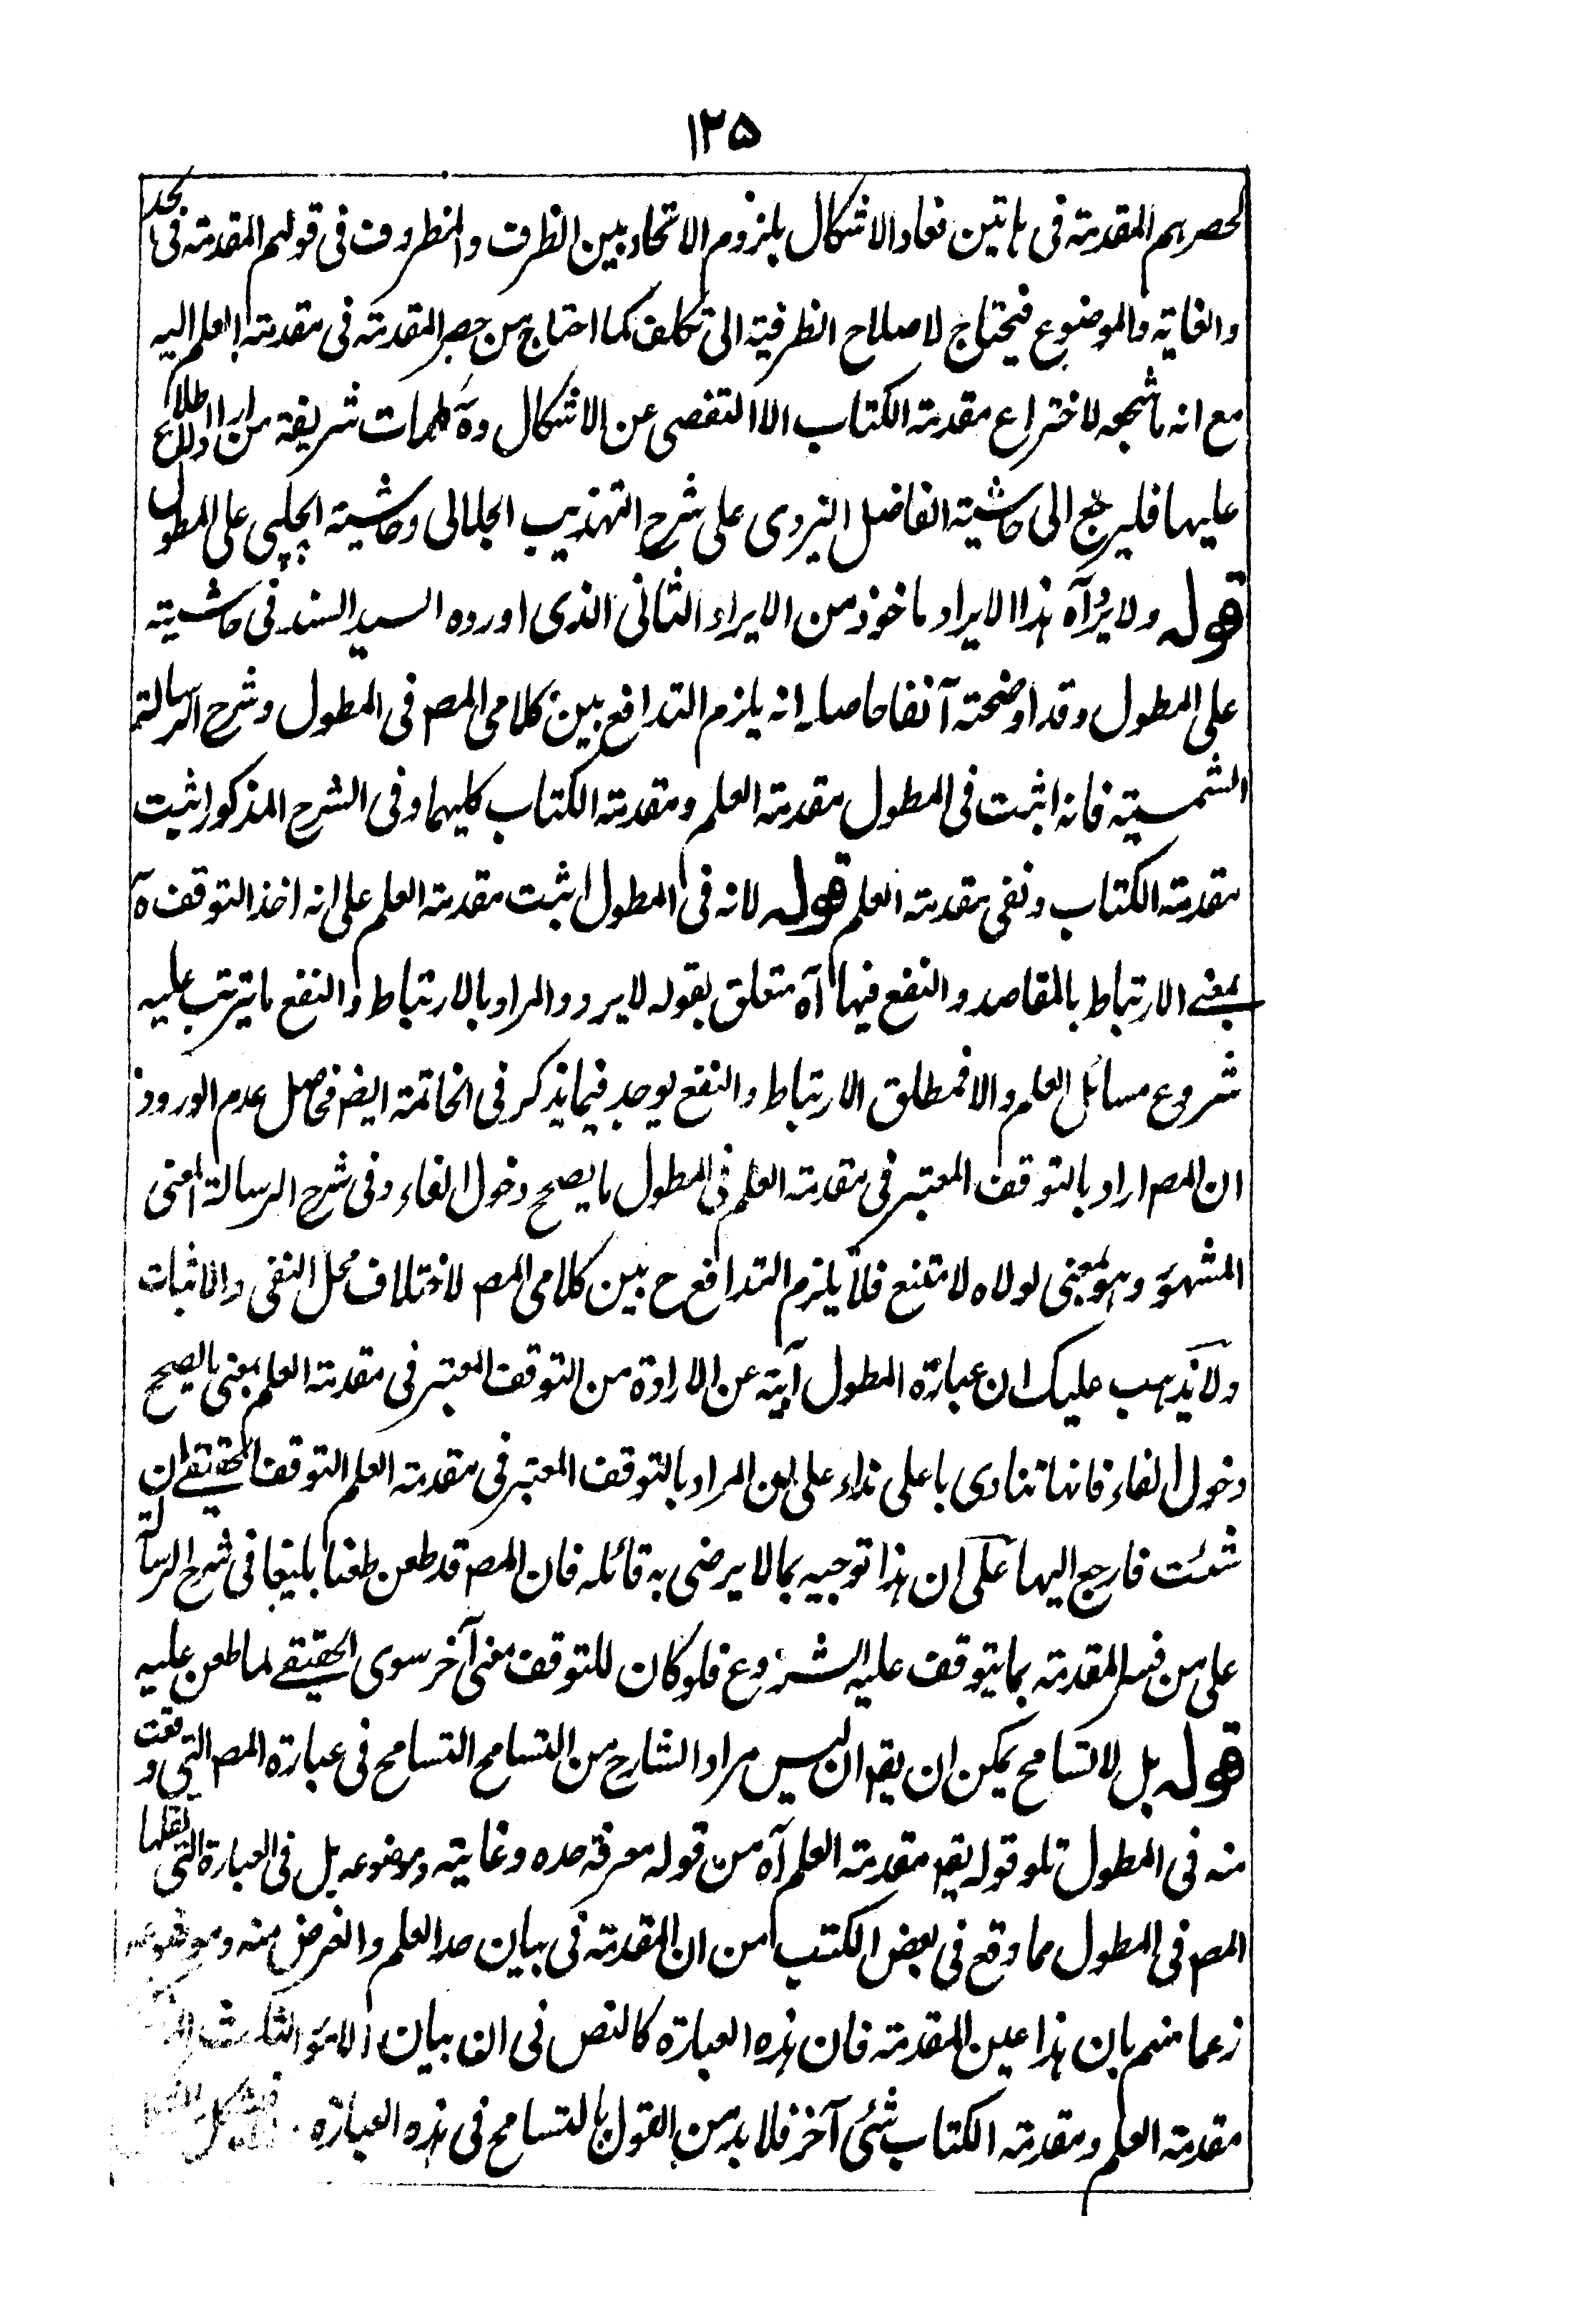 ١٢٥
لحصرهم المقدمة فى هاتين فعاد الاشكال بلزوم الاتحاد بين الظرف والمظروف فى قولهم المقدمة فى الحد
والغاية والموضوع فيحتاج لاصلاح الظرفية الى تكلف كما احتاج من حصر المقدمة فى مقدمة العلم اليه
مع انه ما شجعه لاختراع مقدمة الكتاب الا التفصى عن الاشكال وههنا كلمات شريفة من اراد الاطلاع
عليها فليرجع الى حاشية الفاضل اليزدى على شرح التهذيب الجلالى وحاشية الچلپى على المطول
قوله ولا يرد آه هذا الايراد ماخوذ من الايراد الثانى الذى اورده السيد السند فى حاشيته
على المطول وقد اوضحته آنفا حاصله انه يلزم التدافع بين كلامى المصـ فى المطول وشرح الرسالة
الشمسية فانه اثبت فى المطول مقدمة العلم ومقدمة الكتاب كليهما وفى الشرح المذكور اثبت
مقدمة الكتاب ونفى مقدمة العلم قوله لانه فى المطول اثبت مقدمة العلم على انه اخذ التوقف آه
بمعنى الارتباط بالمقاصد والنفع فيها آه متعلق بقوله لا يرد والمراد بالارتباط والنفع ما يترتب عليه
شروع مسائل العلم والا فمطلق الارتباط والنفع يوجد فيما يذكر فى الخاتمة ايضـ فحاصل عدم الورود
ان المصـ اراد بالتوقف المعتبر فى مقدمة العلم فى المطول ما يصحح دخول الفاء وفى شرح الرسالة المعنى
المشهور وهو بمعنى لولاه لامتنع فلا يلزم التدافع ح بين كلامى المصـ لاختلاف محل النفى والاثبات
ولا يذهب عليك ان عبارة المطول آبية عن الارادة من التوقف المعتبر فى مقدمة العلم بمعنى ما يصحح
دخول الفاء فانها تنادى باعلى نداء على ان المراد بالتوقف المعتبر فى مقدمة العلم التوقف الحقيقى ان
شئت فارجع اليها على ان هذا توجيه بما لا يرضى به قائله فان المصـ قد طعن طعنا بليغا فى شرح الرسالة
على من فسر المقدمة بما يتوقف عليه الشروع فلو كان للتوقف معنى آخر سوى الحقيقى لما طعن عليه
قوله بل لا تسامح يمكن ان يقـ ان ليس مراد الشارح من التسامح التسامح فى عبارة المصـ التى وقعت
منه فى المطول تلو قوله يقـ مقدمة العلم آه من قوله معرفة حده وغايته وموضوعه بل فى العبارة التى نقلها
المصـ فى المطول مما وقع فى بعض الكتب من ان المقدمة فى بيان حد العلم والغرض منه وموضوعه
زعما منهم بان هذا عين المقدمة فان هذه العبارة كالنص فى ان بيان الامور الثلث
مقدمة العلم ومقدمة الكتاب شئ آخر فلا بد من القول بالتسامح فى هذه العبارة